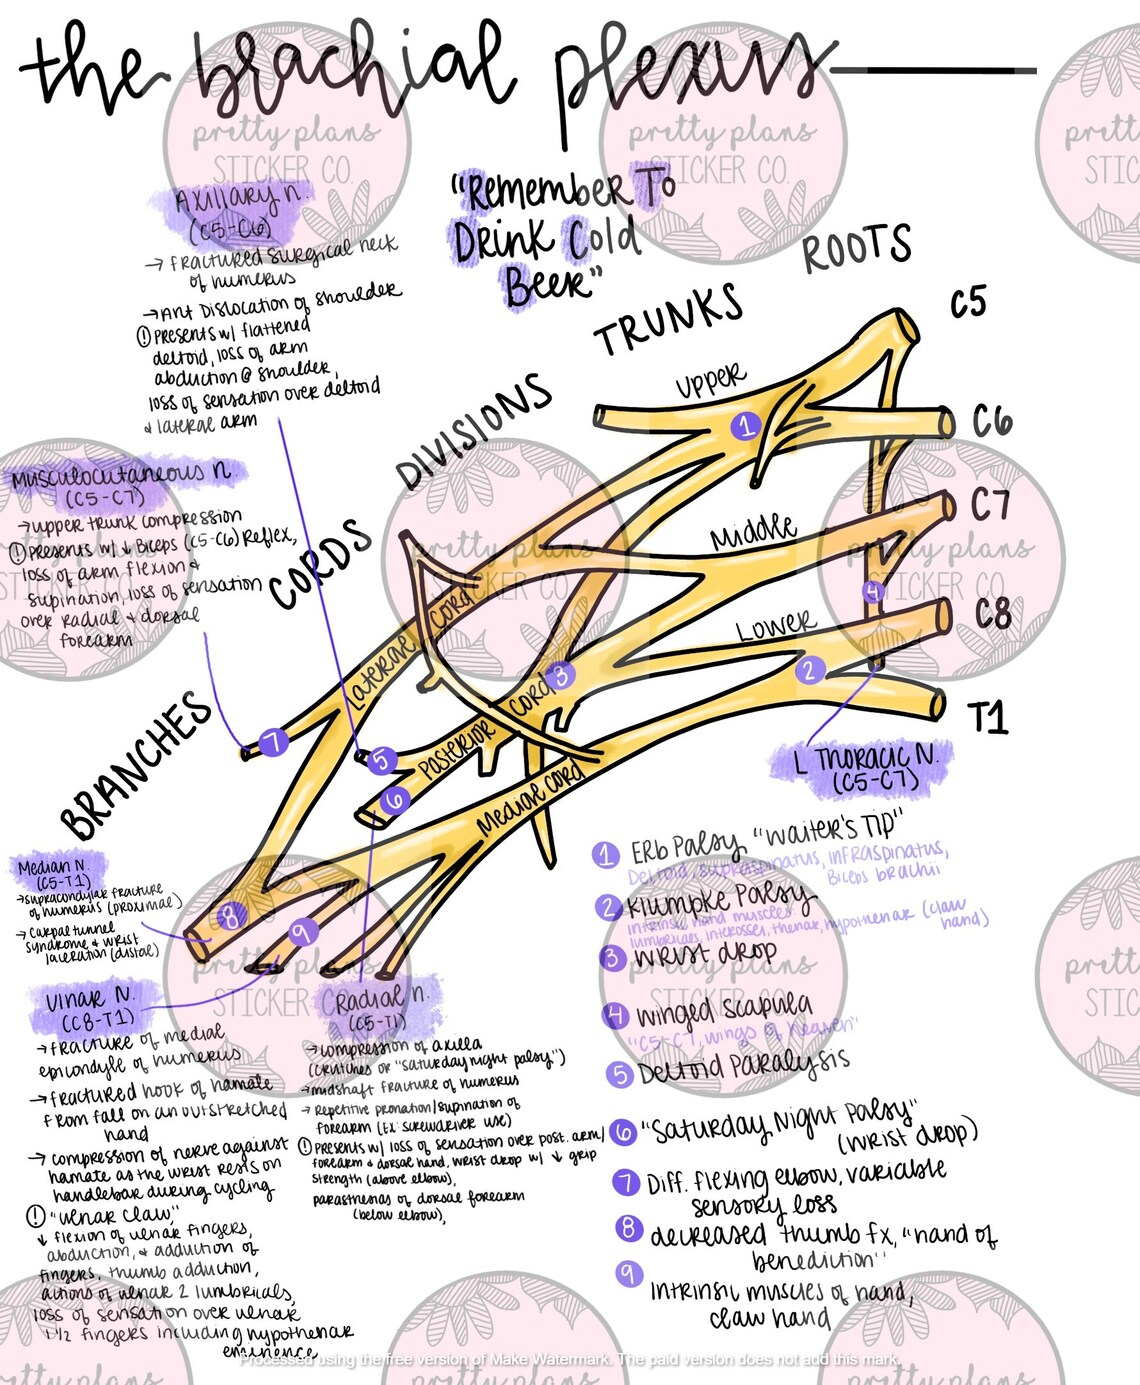 the brachial plexus
pretty plans
STICKER CO.
pretty plans
STICKER CO.
pretty
STIC
Axillary n.
(C5-C6)
→ fractured surgical neck
of humerus
→ Ant Dislocation of shoulder
! Presents w/ flattened
deltoid, loss of arm
abduction @ shoulder,
loss of sensation over deltoid
& lateral arm
"Remember To
Drink Cold
Beer"
ROOTS
TRUNKS
DIVISIONS
CORDS
BRANCHES
C5
C6
C7
C8
T1
Upper
Middle
Lower
Lateral Cord
Posterior Cord
Medial Cord
1
2
3
4
5
6
7
8
9
pretty plans
STICKER CO.
pretty plans
STICKER CO.
Musculocutaneous n.
(C5-C7)
→ upper trunk compression
! Presents w/ ↓ Biceps (C5-C6) Reflex,
loss of arm flexion &
supination, loss of sensation
over radial & dorsal
forearm
L Thoracic N.
(C5-C7)
Median N.
(C5-T1)
→ supracondylar fracture
of humerus (proximal)
→ Carpal tunnel
syndrome & wrist
laceration (distal)
Ulnar N.
(C8-T1)
→ fracture of medial
epicondyle of humerus
→ fractured hook of hamate
from fall on an outstretched
hand
→ compression of nerve against
hamate as the wrist rests on
handlebar during cycling
! "ulnar claw,"
↓ flexion of ulnar fingers,
abduction, & adduction of
fingers, thumb adduction,
actions of ulnar 2 lumbricals,
loss of sensation over ulnar
1 1/2 fingers including hypothenar
eminence
Radial n.
(C5-T1)
→ compression of axilla
(crutches or "saturday night palsy")
→ midshaft fracture of humerus
→ Repetitive pronation/supination of
forearm (Ex: screwdriver use)
! Presents w/ loss of sensation over post. arm/
forearm & dorsal hand, wrist drop w/ ↓ grip
strength (above elbow),
parasthesias of dorsal forearm
(below elbow),
1 Erb Palsy "Waiter's Tip"
Deltoid, supraspinatus, infraspinatus,
Biceps brachii
2 Klumpke Palsy
intrinsic hand muscles:
lumbricals, interossei, thenar, hypothenar (claw
hand)
3 Wrist drop
4 winged scapula
"C5-C7, wings of heaven"
5 Deltoid Paralysis
6 "Saturday Night Palsy"
(wrist drop)
7 Diff. flexing elbow, variable
sensory loss
8 decreased thumb fx, "hand of
benediction"
9 Intrinsic muscles of hand,
claw hand
pretty plans
STICKER CO.
pretty plans
STICKER CO.
pretty
STIC
pretty plans
pretty plans
pretty plans
Processed using the free version of Make Watermark. The paid version does not add this mark.